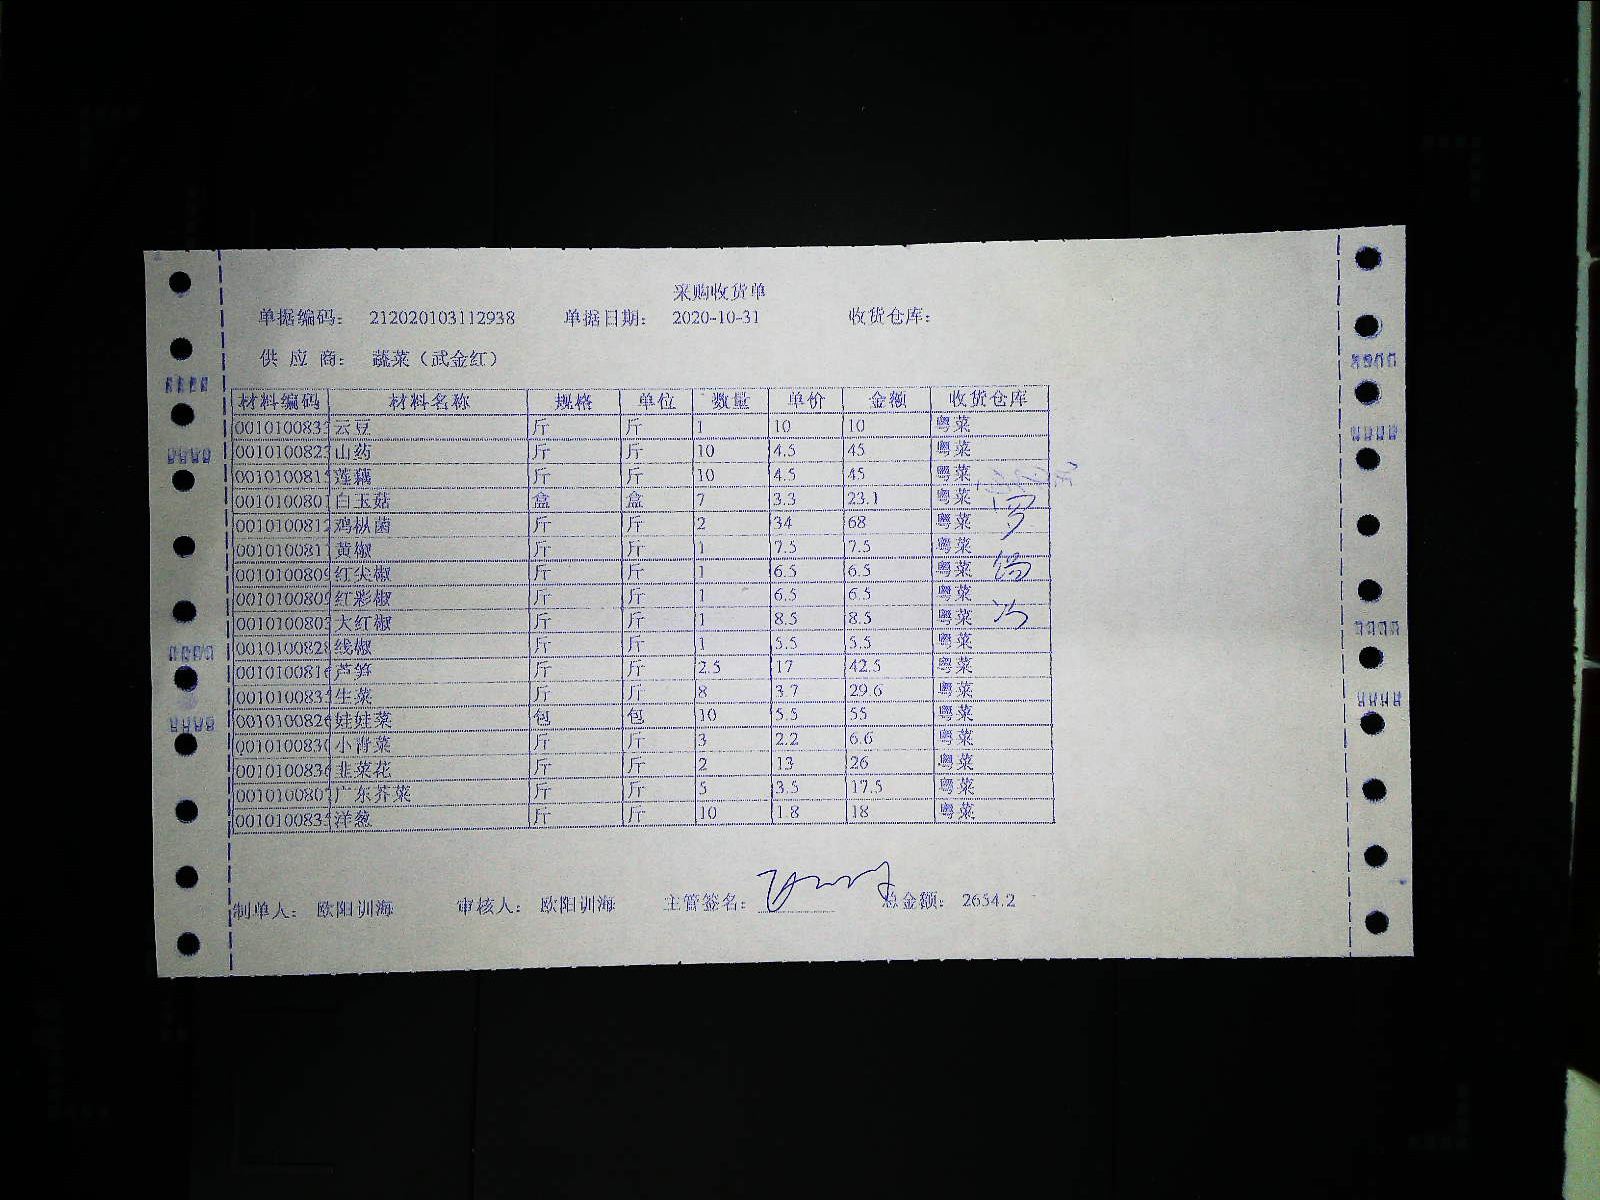 采购收货单
单据编码： 212020103112938 单据日期： 2020-10-31 收货仓库：
供 应 商： 蔬菜（武金红）
材料编码 材料名称 规格 单位 数量 单价 金额 收货仓库
001010083 云豆 斤 斤 1 10 10 粤菜
001010082 山药 斤 斤 10 4.5 45 粤菜
001010081 莲藕 斤 斤 10 4.5 45 粤菜
001010080 白玉菇 盒 盒 7 3.3 23.1 粤菜
001010081 鸡枞菌 斤 斤 2 34 68 粤菜
001010081 黄椒 斤 斤 1 7.5 7.5 粤菜
001010080 红尖椒 斤 斤 1 6.5 6.5 粤菜
001010080 红彩椒 斤 斤 1 6.5 6.5 粤菜
001010080 大红椒 斤 斤 1 8.5 8.5 粤菜
001010082 线椒 斤 斤 1 5.5 5.5 粤菜
001010081 芦笋 斤 斤 2.5 17 42.5 粤菜
001010083 生菜 斤 斤 8 3.7 29.6 粤菜
001010082 娃娃菜 包 包 10 5.5 55 粤菜
001010083 小青菜 斤 斤 3 2.2 6.6 粤菜
001010083 韭菜花 斤 斤 2 13 26 粤菜
001010080 广东芥菜 斤 斤 5 3.5 17.5 粤菜
001010083 洋葱 斤 斤 10 1.8 18 粤菜
制单人： 欧阳训海 审核人： 欧阳训海 主管签名： 总金额： 2654.2